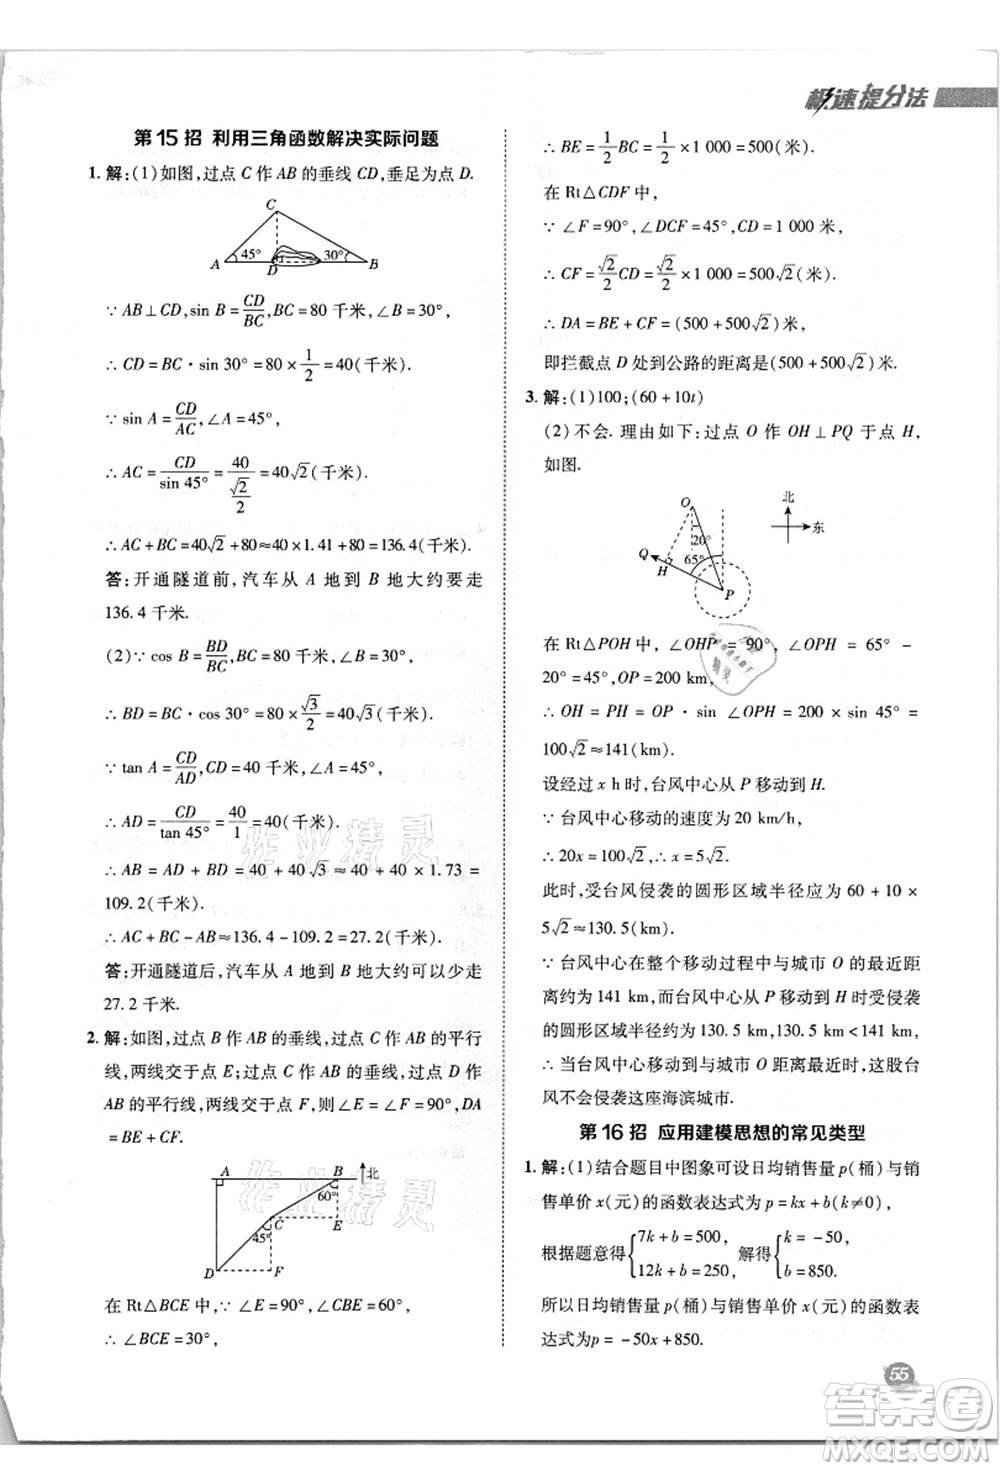 极速提分法
第15招 利用三角函数解决实际问题
1. 解:(1)如图,过点 C 作 AB 的垂线 CD,垂足为点 D.
C
45°
30°
A
D
B
∵ AB⊥CD,sin B=CD/BC,BC=80 千米,∠B=30°,
∴ CD=BC·sin 30°=80×1/2=40(千米).
∵ sin A=CD/AC,∠A=45°,
∴ AC=CD/sin 45°=40/(√2/2)=40√2(千米).
∴ AC+BC=40√2+80≈40×1.41+80=136.4(千米).
答:开通隧道前,汽车从 A 地到 B 地大约要走
136.4 千米.
(2)∵ cos B=BD/BC,∠B=30°,BC=80 千米,
∴ BD=BC·cos 30°=80×√3/2=40√3(千米).
∵ tan A=CD/AD,CD=40 千米,∠A=45°,
∴ AD=CD/tan 45°=40/1=40(千米).
∴ AB=AD+BD=40+40√3≈40+40×1.73=
109.2(千米).
∴ AC+BC-AB≈136.4-109.2=27.2(千米).
答:开通隧道后,汽车从 A 地到 B 地大约可以少走
27.2 千米.
2. 解:如图,过点 B 作 AB 的垂线,过点 C 作 AB 的平行
线,两线交于点 E;过点 C 作 AB 的垂线,过点 D 作
AB 的平行线,两线交于点 F,则∠E=∠F=90°,DA
=BE+CF.
A
B
北
60°
C
E
45°
D
F
在 Rt△BCE 中,∵∠E=90°,∠CBE=60°,
∴ ∠BCE=30°,
∴ BE=1/2BC=1/2×1 000=500(米).
在 Rt△CDF 中,
∵ ∠F=90°,∠DCF=45°,CD=1 000 米,
∴ CF=√2/2CD=√2/2×1 000=500√2(米).
∴ DA=BE+CF=(500+500√2)米,
即拦截点 D 处到公路的距离是(500+500√2)米.
3. 解:(1)100;(60+10t)
(2)不会. 理由如下:过点 O 作 OH⊥PQ 于点 H,
如图.
O
北
东
20°
Q
H
65°
P
在 Rt△POH 中,∠OHP=90°,∠OPH=65°-
20°=45°,OP=200 km,
∴ OH=PH=OP·sin ∠OPH=200×sin 45°=
100√2≈141(km).
设经过 x h时,台风中心从 P 移动到 H.
∵ 台风中心移动的速度为 20 km/h,
∴ 20x=100√2,∴ x=5√2.
此时,受台风侵袭的圆形区域半径应为 60+10×
5√2≈130.5(km).
∵ 台风中心在整个移动过程中与城市 O 的最近距
离约为 141 km,而台风中心从 P 移动到 H 受侵袭
的圆形区域半径约为 130.5 km,130.5 km<141 km,
∴ 当台风中心移动到与城市 O 距离最近时,城市
O 不会受到侵袭这座海滨城市.
第16招 应用建模思想的常见类型
1. 解:(1)结合题目中图象可设日均销售量 p(桶)与销
售单价 x(元)的函数表达式为 p=kx+b(k≠0),
根据题意得{7k+b=500, 12k+b=250, 解得{k=-50, b=850.
所以日均销售量 p(桶)与销售单价 x(元)的函数表
达式为p=-50x+850.
55
作业精灵
作业精灵
答案圈
MXQE.COM